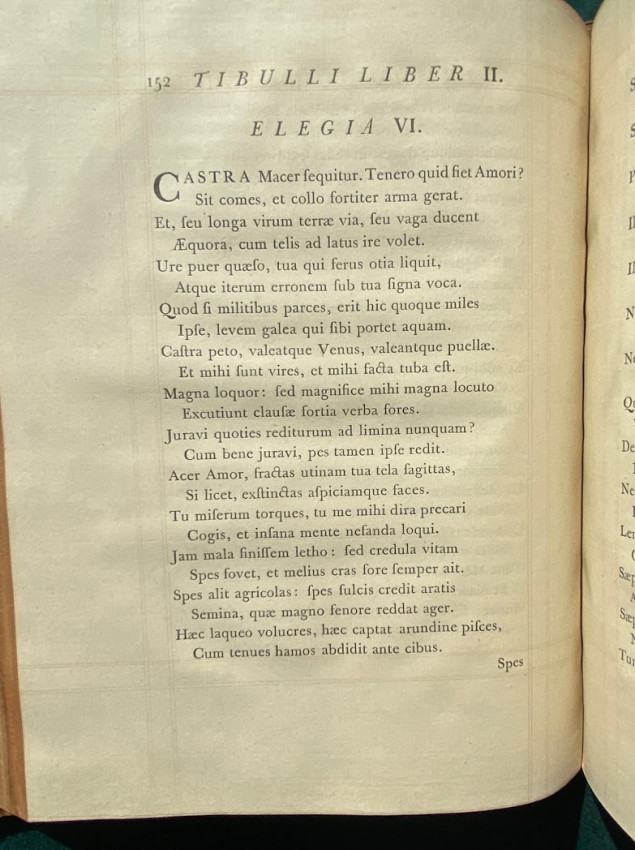 152 TIBULLI LIBER II.
ELEGIA VI.
CASTRA Macer ſequitur. Tenero quid fiet Amori?
Sit comes, et collo fortiter arma gerat.
Et, ſeu longa virum terræ via, ſeu vaga ducent
Æquora, cum telis ad latus ire volet.
Ure puer quæſo, tua qui ferus otia liquit,
Atque iterum erronem ſub tua ſigna voca.
Quod ſi militibus parces, erit hic quoque miles
Ipſe, levem galea qui ſibi portet aquam.
Caſtra peto, valeatque Venus, valeantque puellæ.
Et mihi ſunt vires, et mihi facta tuba eſt.
Magna loquor: ſed magnifice mihi magna locuto
Excutiunt clauſæ fortia verba fores.
Juravi quoties rediturum ad limina nunquam?
Cum bene juravi, pes tamen ipſe redit.
Acer Amor, fractas utinam tua tela ſagittas,
Si licet, exſtinctas aſpiciamque faces.
Tu miſerum torques, tu me mihi dira precari
Cogis, et inſana mente nefanda loqui.
Jam mala finiſſem letho: ſed credula vitam
Spes fovet, et melius cras fore ſemper ait.
Spes alit agricolas: ſpes ſulcis credit aratis
Semina, quæ magno fenore reddat ager.
Hæc laqueo volucres, hæc captat arundine piſces,
Cum tenues hamos abdidit ante cibus.
Spes
S
S
P
Il
Il
N
Ne
Qu
De
Ne
Len
Sæp
A
Sæp
N
Tur